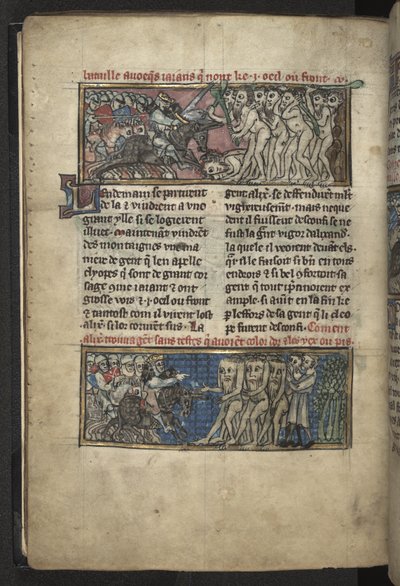 bataille avoecqs jaians q nont ke .i. oeil ou front
Lendemain se partirent
de la & vindrent a vne
grant ylle si se logierent
illuec. maintenant vindrent
des montaignes vne ma
niere de gent q len apelle
clyopes q sont de grant cor
sage come jaiant & ont
grosse vois & .i. oeil ou front
& tantost com il virent lost
alix. si lor coururent sus. La
gent alix. se deffendirent mlt
vigheureusement. mais neque
dent il fuissent desconfi se ne
fust la grant vigor dalixand.
la quele il veoient deuant els.
qr il le faisoit si bn en tous
endrois & si bel confortoit sa
gent q tout i prendoient ex
ample. si auint en la fin ke
p lesfors de sa gent q li clio
pe furent desconfi. Coment
alix. trouua gent sans testes q auoient color dor & les yex ou pis